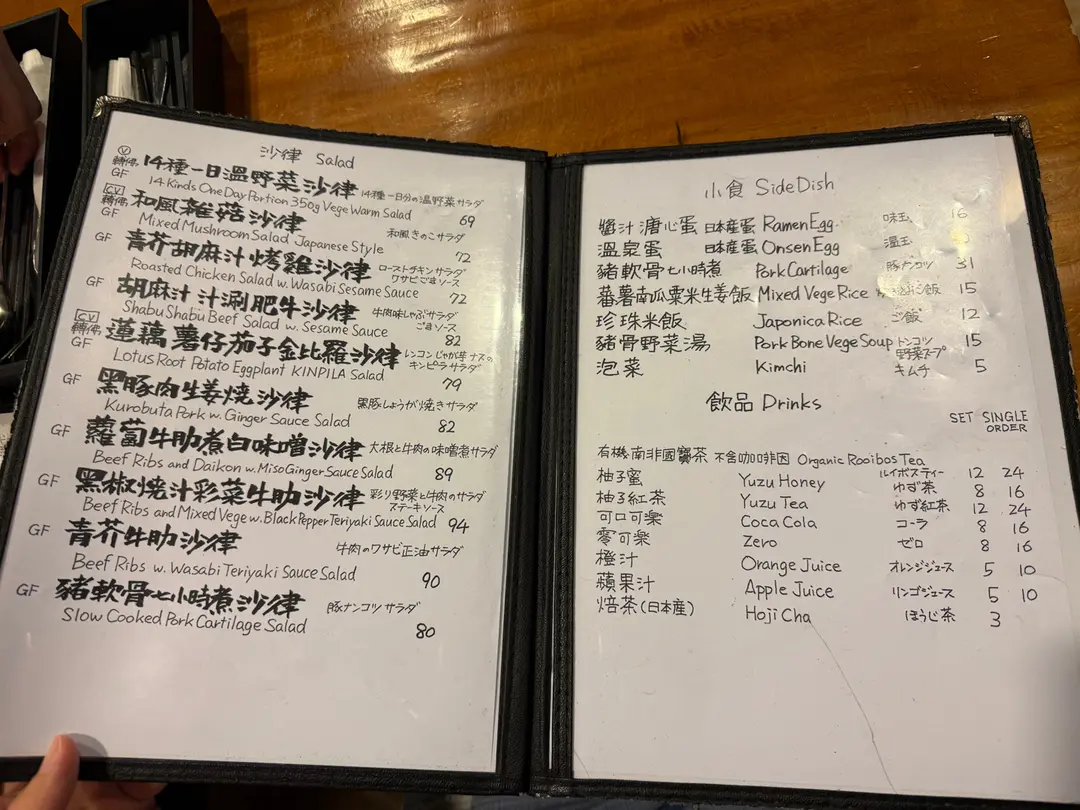 沙律 Salad
Ⓥ 轉佛 GF 14種一日溫野菜沙律 14種一日分の温野菜サラダ
14 Kinds One Day Portion 350g Vege Warm Salad 69
CV 轉佛 GF 和風雜菇沙律 和風きのこサラダ
Mixed Mushroom Salad Japanese Style 72
GF 青芥胡麻汁烤雞沙律 ローストチキンサラダ ワサビごまソース
Roasted Chicken Salad w. Wasabi Sesame Sauce 72
GF 胡麻汁汁涮肥牛沙律 牛肉味しゃぶサラダ ごまソース
Shabu Shabu Beef Salad w. Sesame Sauce 82
CV 轉佛 GF 蓮藕薯仔茄子金比羅沙律 レンコンじゃが芋ナスのキンピラサラダ
Lotus Root Potato Eggplant KINPILA Salad 79
GF 黑豚肉生姜燒沙律 黒豚しょうが焼きサラダ
Kurobuta Pork w. Ginger Sauce Salad 82
GF 蘿蔔牛肋煮白味噌沙律 大根と牛肉の味噌煮サラダ
Beef Ribs and Daikon w. Miso Ginger Sauce Salad 89
GF 黑椒燒汁彩菜牛肋沙律 彩り野菜と牛肉のサラダ ステーキソース
Beef Ribs and Mixed Vege w. Black Pepper Teriyaki Sauce Salad 94
GF 青芥牛肋沙律 牛肉のワサビ正油サラダ
Beef Ribs w. Wasabi Teriyaki Sauce Salad 90
GF 豬軟骨七小時煮沙律 豚ナンコツ サラダ
Slow Cooked Pork Cartilage Salad 80
小食 Side Dish
醬汁溏心蛋 日本産蛋 Ramen Egg 味玉 16
溫泉蛋 日本産蛋 Onsen Egg 温玉
豬軟骨七小時煮 Pork Cartilage 豚ナンコツ 31
蕃薯南瓜粟米生姜飯 Mixed Vege Rice ご飯 15
珍珠米飯 Japonica Rice ご飯 12
豬骨野菜湯 Pork Bone Vege Soup トンコツ野菜スープ 15
泡菜 Kimchi キムチ 5
飲品 Drinks
SET SINGLE ORDER
有機南非國寶茶 不含咖啡因 Organic Rooibos Tea ルイボスティー 12 24
柚子蜜 Yuzu Honey ゆず茶 8 16
柚子紅茶 Yuzu Tea ゆず紅茶 12 24
可口可樂 Coca Cola コーラ 8 16
零可樂 Zero ゼロ 8 16
橙汁 Orange Juice オレンジジュース 5 10
蘋果汁 Apple Juice リンゴジュース 5 10
焙茶(日本産) Hoji Cha ほうじ茶 3